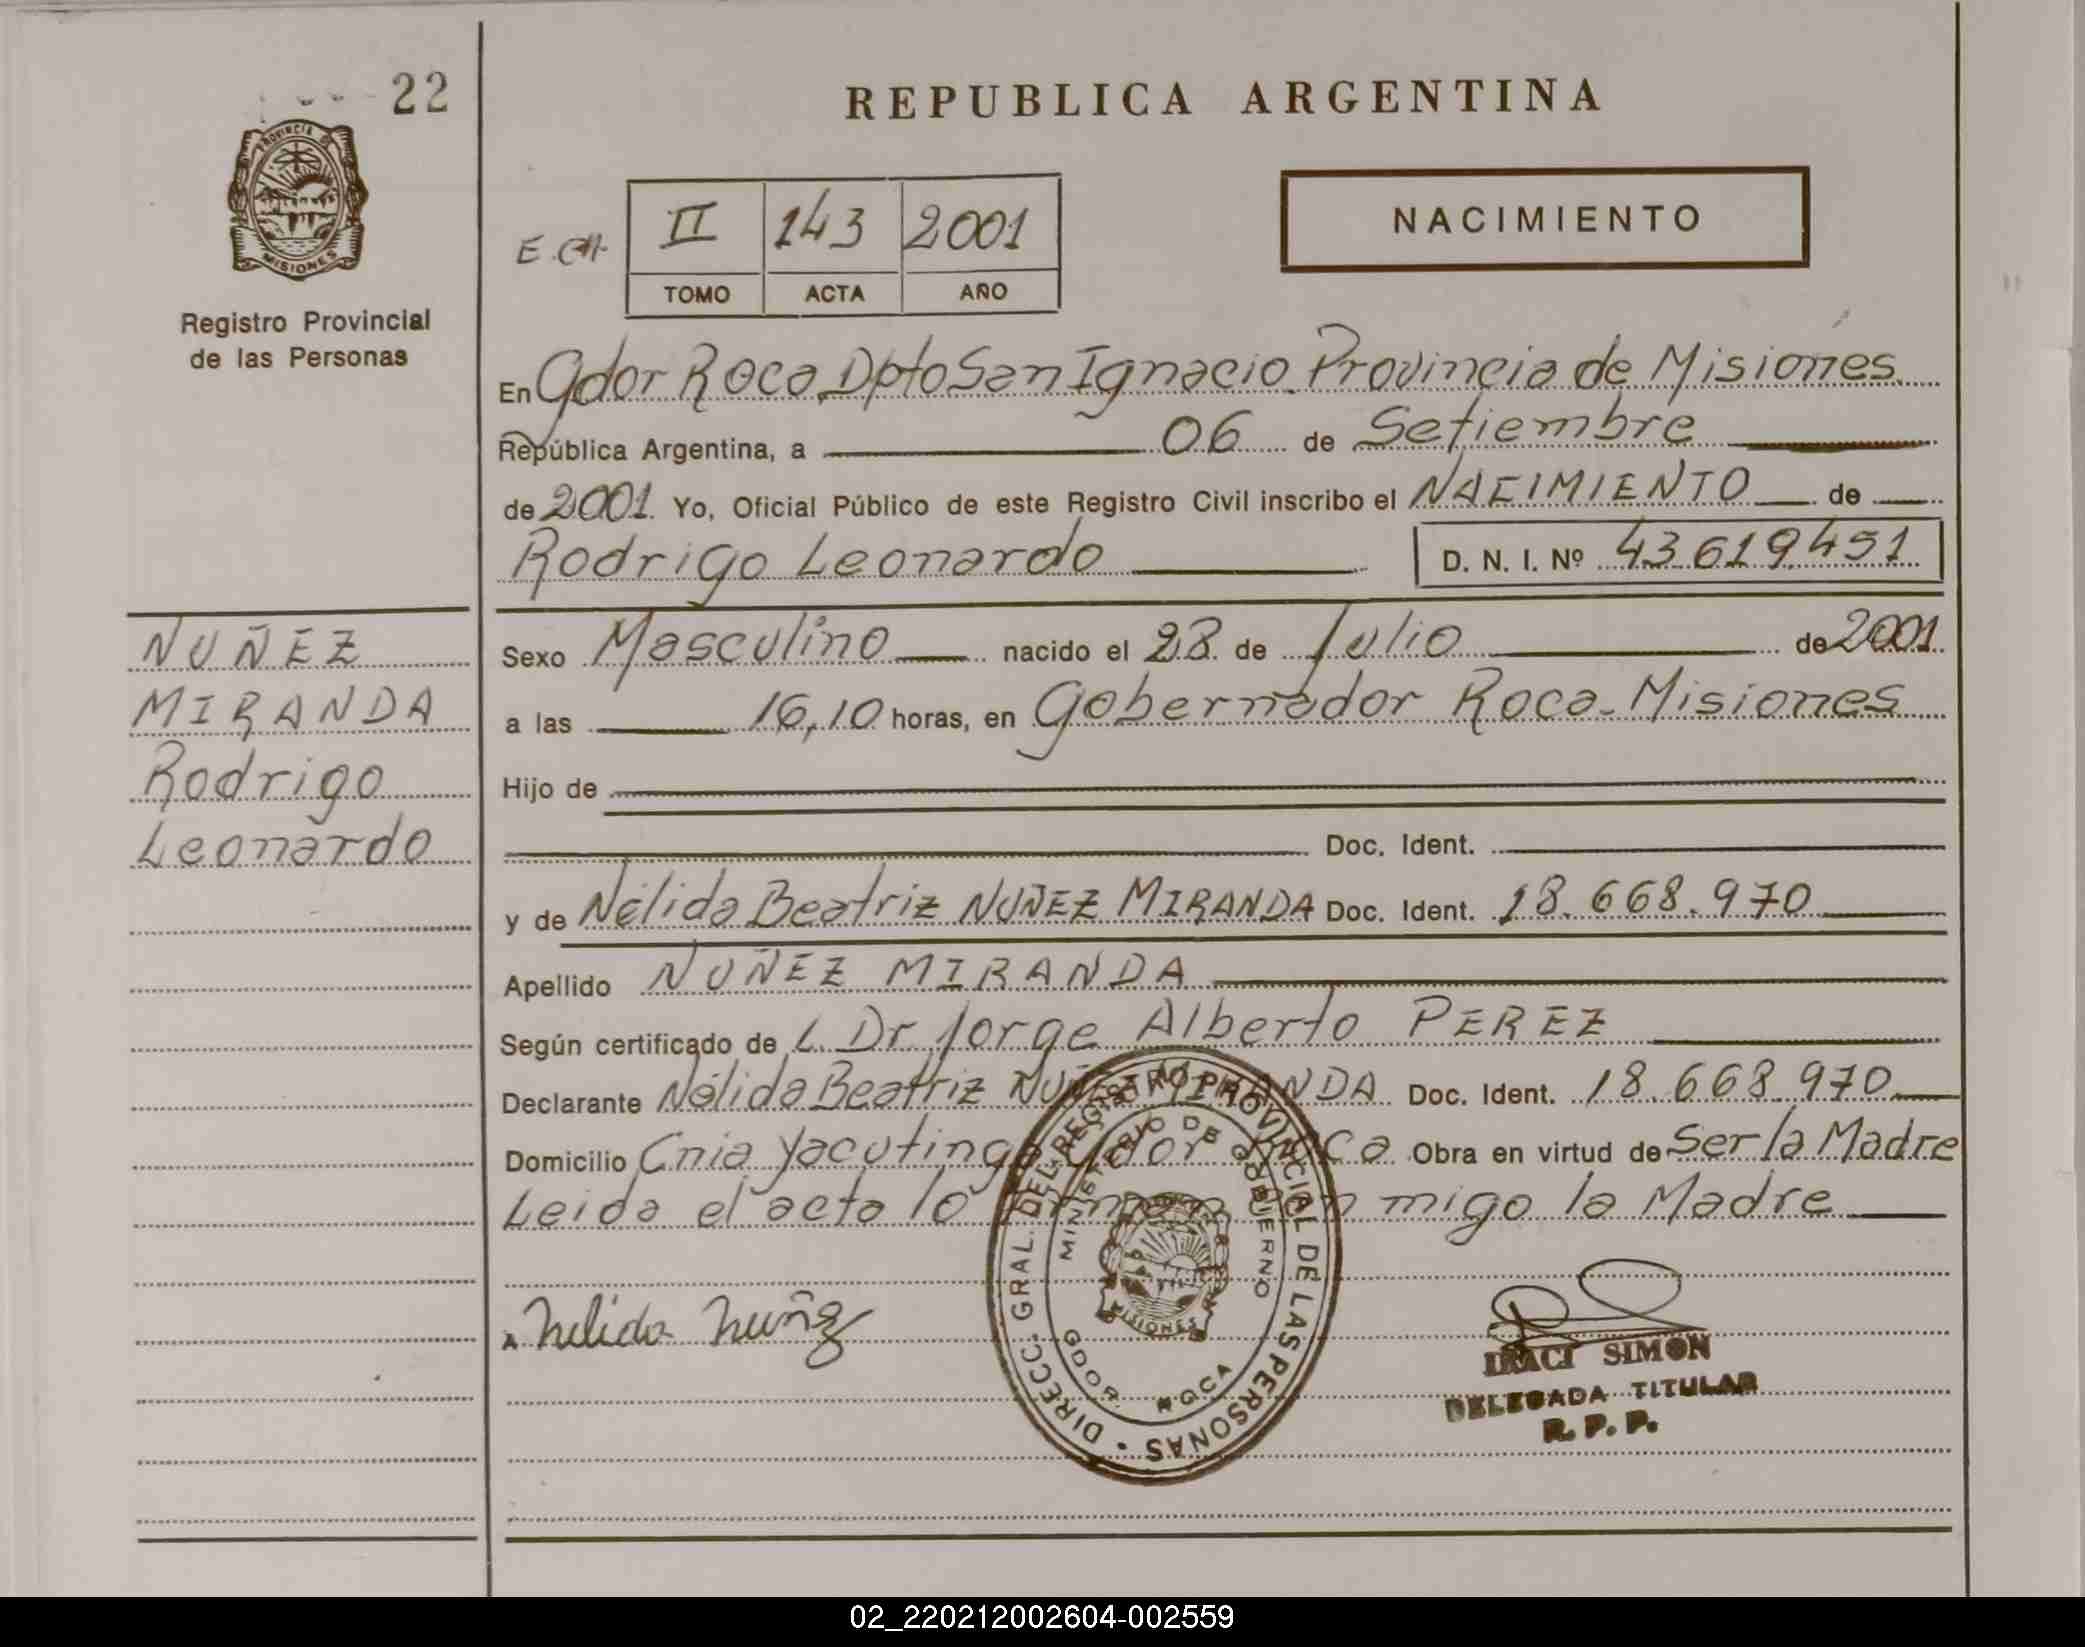 22
REPUBLICA ARGENTINA
PROVINCIA DE
MISIONES
Registro Provincial
de las Personas
E. CH
II 143 2001
TOMO ACTA AÑO
NACIMIENTO
En Gdor Roca, Dpto San Ignacio. Provincia de Misiones
República Argentina, a 06 de Setiembre
de 2001 Yo, Oficial Público de este Registro Civil inscribo el NACIMIENTO de
Rodrigo Leonardo D. N. I. Nº 43.619.451
NUÑEZ
MIRANDA
Rodrigo
Leonardo
Sexo Masculino nacido el 28 de Julio de 2001
a las 16,10 horas, en Gobernador Roca-Misiones
Hijo de
Doc. Ident.
y de Nélida Beatriz NUÑEZ MIRANDA Doc. Ident. 18.668.970
Apellido NUÑEZ MIRANDA
Según certificado de L. Dr Jorge Alberto PEREZ
Declarante Nélida Beatriz NUÑEZ MIRANDA Doc. Ident. 18.668.970
Domicilio Cnia Yacutinga Gdor Roca Obra en virtud de Ser la Madre
Leida el acta lo firman con migo la Madre
Nelida Nuñez
DIRECC. GRAL. DEL REGISTRO PROVINCIAL DE LAS PERSONAS
MINISTERIO DE GOBIERNO
MISIONES
GDOR. ROCA
IRACI SIMON
DELEGADA TITULAR
R. P. P.
02_220212002604-002559